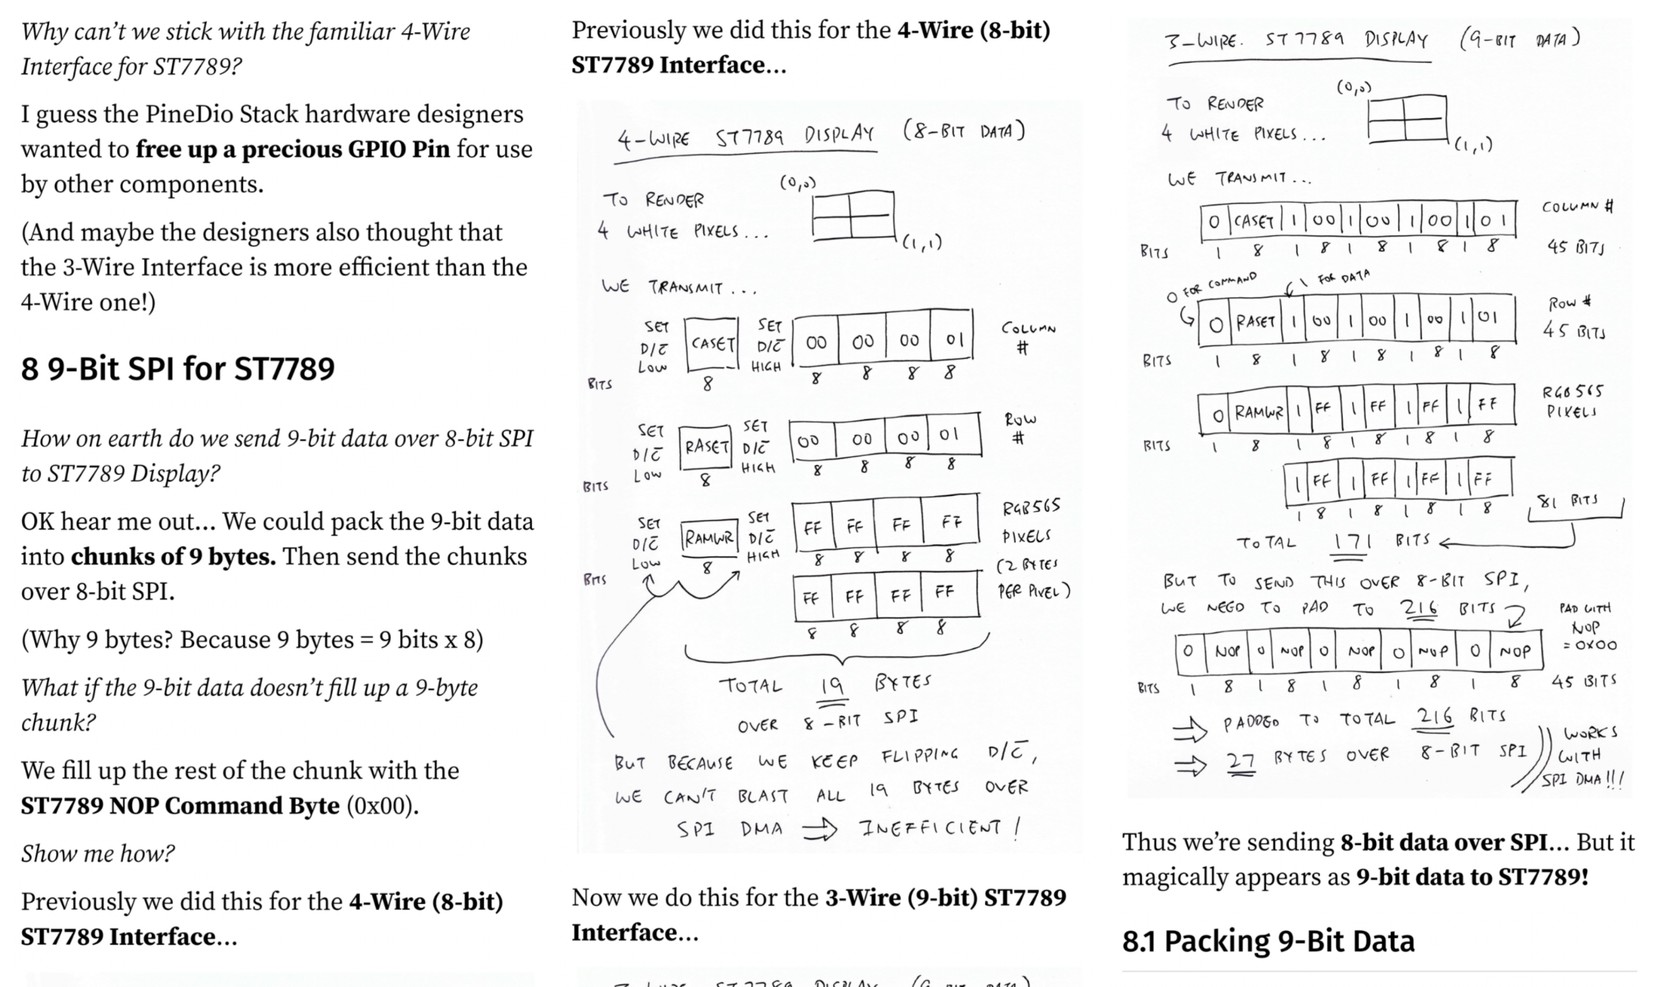 Why can't we stick with the familiar 4-Wire
Interface for ST7789?
I guess the PineDio Stack hardware designers
wanted to free up a precious GPIO Pin for use
by other components.
(And maybe the designers also thought that
the 3-Wire Interface is more efficient than the
4-Wire one!)
8 9-Bit SPI for ST7789
How on earth do we send 9-bit data over 8-bit SPI
to ST7789 Display?
OK hear me out… We could pack the 9-bit data
into chunks of 9 bytes. Then send the chunks
over 8-bit SPI.
(Why 9 bytes? Because 9 bytes = 9 bits x 8)
What if the 9-bit data doesn't fill up a 9-byte
chunk?
We fill up the rest of the chunk with the
ST7789 NOP Command Byte (0x00).
Show me how?
Previously we did this for the 4-Wire (8-bit)
ST7789 Interface…
Previously we did this for the 4-Wire (8-bit)
ST7789 Interface…
4-WIRE ST7789 DISPLAY (8-BIT DATA)
TO RENDER
4 WHITE PIXELS...
(0,0)
(1,1)
WE TRANSMIT...
SET D/C̅ LOW CASET SET D/C̅ HIGH 00 00 00 01 COLUMN #
BITS 8 8 8 8 8
SET D/C̅ LOW RASET SET D/C̅ HIGH 00 00 00 01 ROW #
BITS 8 8 8 8 8
SET D/C̅ LOW RAMWR SET D/C̅ HIGH FF FF FF FF RGB565 PIXELS (2 BYTES PER PIXEL)
BITS 8 8 8 8 8
FF FF FF FF
8 8 8 8
TOTAL 19 BYTES
OVER 8-BIT SPI
BUT BECAUSE WE KEEP FLIPPING D/C̅,
WE CAN'T BLAST ALL 19 BYTES OVER
SPI DMA ⇒ INEFFICIENT!
Now we do this for the 3-Wire (9-bit) ST7789
Interface…
3-WIRE ST7789 DISPLAY (9-BIT DATA)
3-WIRE. ST7789 DISPLAY (9-BIT DATA)
TO RENDER
4 WHITE PIXELS...
(0,0)
(1,1)
WE TRANSMIT...
0 CASET 1 00 1 00 1 00 1 01 COLUMN #
BITS 1 8 1 8 1 8 1 8 1 8 45 BITS
0 FOR COMMAND 1 FOR DATA
0 RASET 1 00 1 00 1 00 1 01 ROW # 45 BITS
BITS 1 8 1 8 1 8 1 8 1 8
0 RAMWR 1 FF 1 FF 1 FF 1 FF RGB565 PIXELS
BITS 1 8 1 8 1 8 1 8 1 8
1 FF 1 FF 1 FF 1 FF
1 8 1 8 1 8 1 8 81 BITS
TOTAL 171 BITS
BUT TO SEND THIS OVER 8-BIT SPI,
WE NEED TO PAD TO 216 BITS
PAD WITH NOP = 0x00
0 NOP 0 NOP 0 NOP 0 NOP 0 NOP
BITS 1 8 1 8 1 8 1 8 1 8 45 BITS
⇒ PADDED TO TOTAL 216 BITS
⇒ 27 BYTES OVER 8-BIT SPI
WORKS WITH SPI DMA!!!
Thus we're sending 8-bit data over SPI… But it
magically appears as 9-bit data to ST7789!
8.1 Packing 9-Bit Data